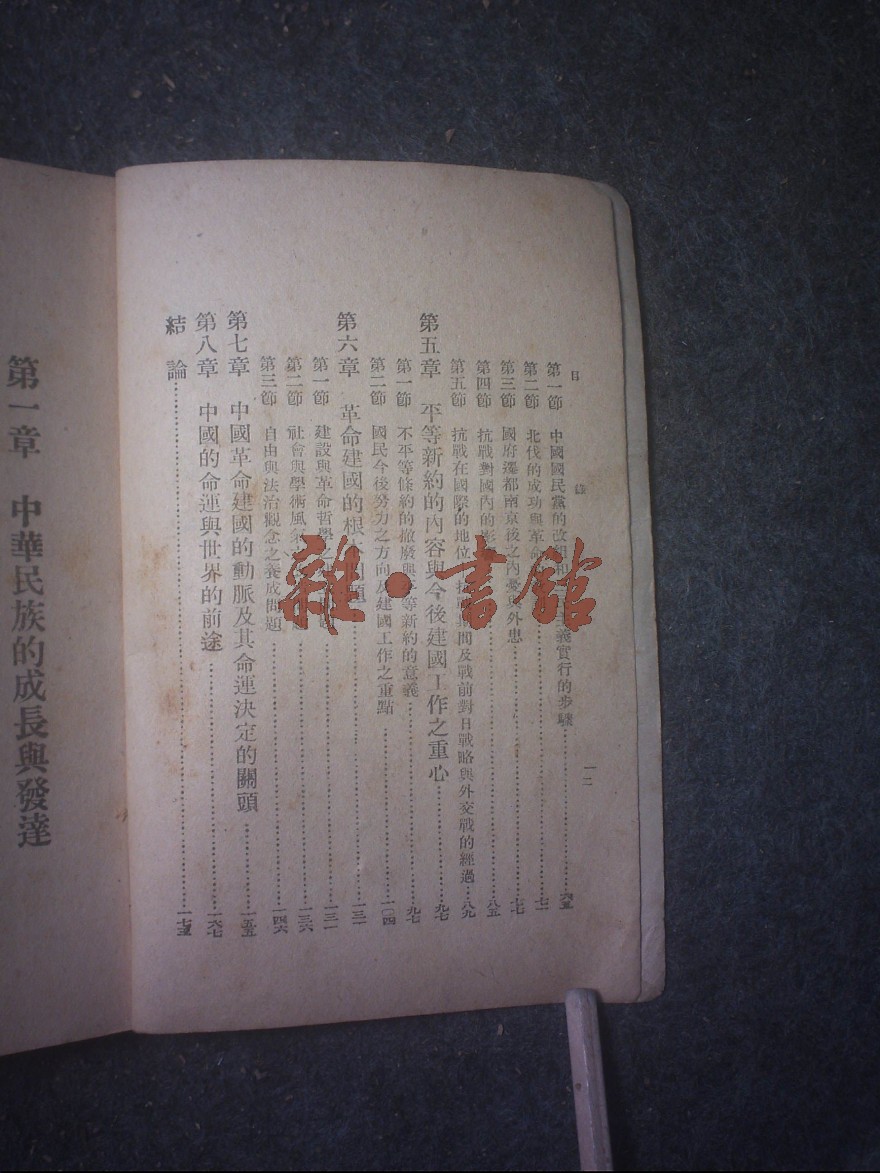 目錄
一二
第一節 中國國民黨的改組和 主義實行的步驟……六五
第二節 北伐的成功與革命……七一
第三節 國府遷都南京後之內憂與外患……七七
第四節 抗戰對國內的影……八五
第五節 抗戰在國際的地位 抗戰期間及戰前對日戰略與外交戰的經過……八九
第五章 平等新約的內容與今後建國工作之重心……九七
第一節 不平等條約的撤廢與平等新約的意義……九七
第二節 國民今後努力之方向及建國工作之重點……一〇四
第六章 革命建國的根本問題……一三一
第一節 建設與革命哲學之……一三一
第二節 社會與學術風氣……一三六
第三節 自由與法治觀念之養成問題……一四六
第七章 中國革命建國的動脈及其命運決定的關頭……一五五
第八章 中國的命運與世界的前途……一六七
結論……一七五
第一章 中華民族的成長與發達
雜·書館